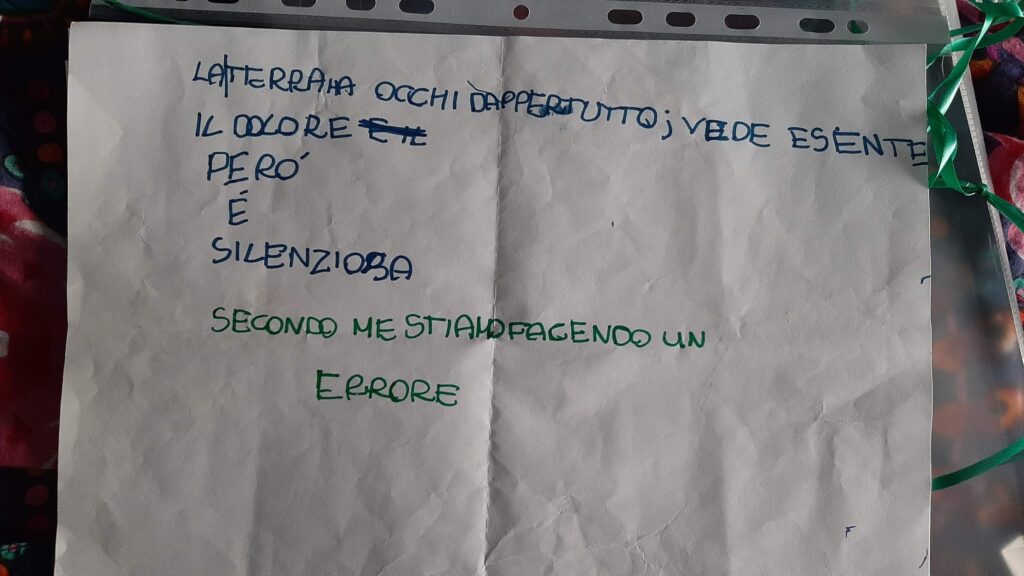 LA TERRA HA OCCHI DAPPERTUTTO; VEDE E SENTE
IL DOLORE
PERÓ
É
SILENZIOSA
SECONDO ME STIAMO FACENDO UN
ERRORE